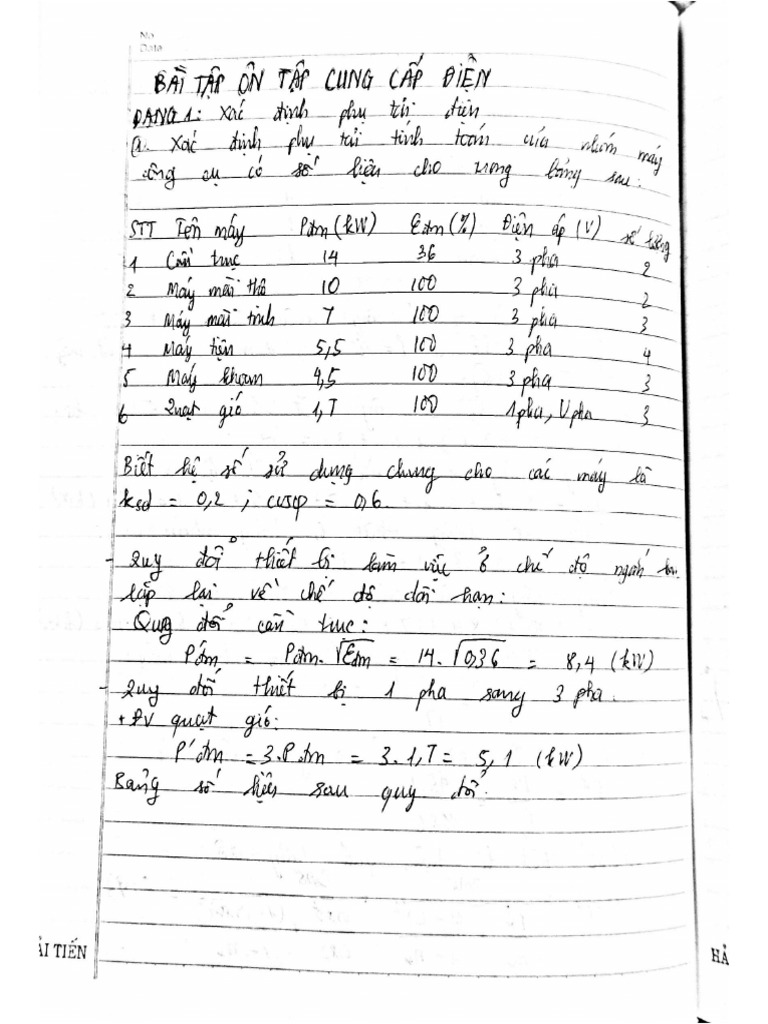 No
Date
BÀI TẬP ÔN TẬP CUNG CẤP ĐIỆN
DẠNG 1: Xác định phụ tải điện
a. Xác định phụ tải tính toán của nhóm máy
công cụ có số liệu cho trong bảng sau:
STT Tên máy Pđm (kW) Eđm (%) Điện áp (V) số lượng
1 Cần trục 14 36 3 pha 2
2 Máy mài thô 10 100 3 pha 2
3 Máy mài tinh 7 100 3 pha 3
4 Máy tiện 5,5 100 3 pha 4
5 Máy khoan 4,5 100 3 pha 3
6 Quạt gió 1,7 100 1 pha, Upha 3
Biết hệ số sử dụng chung cho các máy là
ksd = 0,2 ; cosφ = 0,6.
- Quy đổi thiết bị làm việc ở chế độ ngắn hạn
lặp lại về chế độ dài hạn:
Quy đổi cần trục:
P'đm = Pđm.√Eđm = 14.√0,36 = 8,4 (kW)
- Quy đổi thiết bị 1 pha sang 3 pha.
+ ĐV quạt gió:
P'đm = 3.Pđm = 3.1,7 = 5,1 (kW)
Bảng số liệu sau quy đổi:
ẢI TIẾN
HẢ